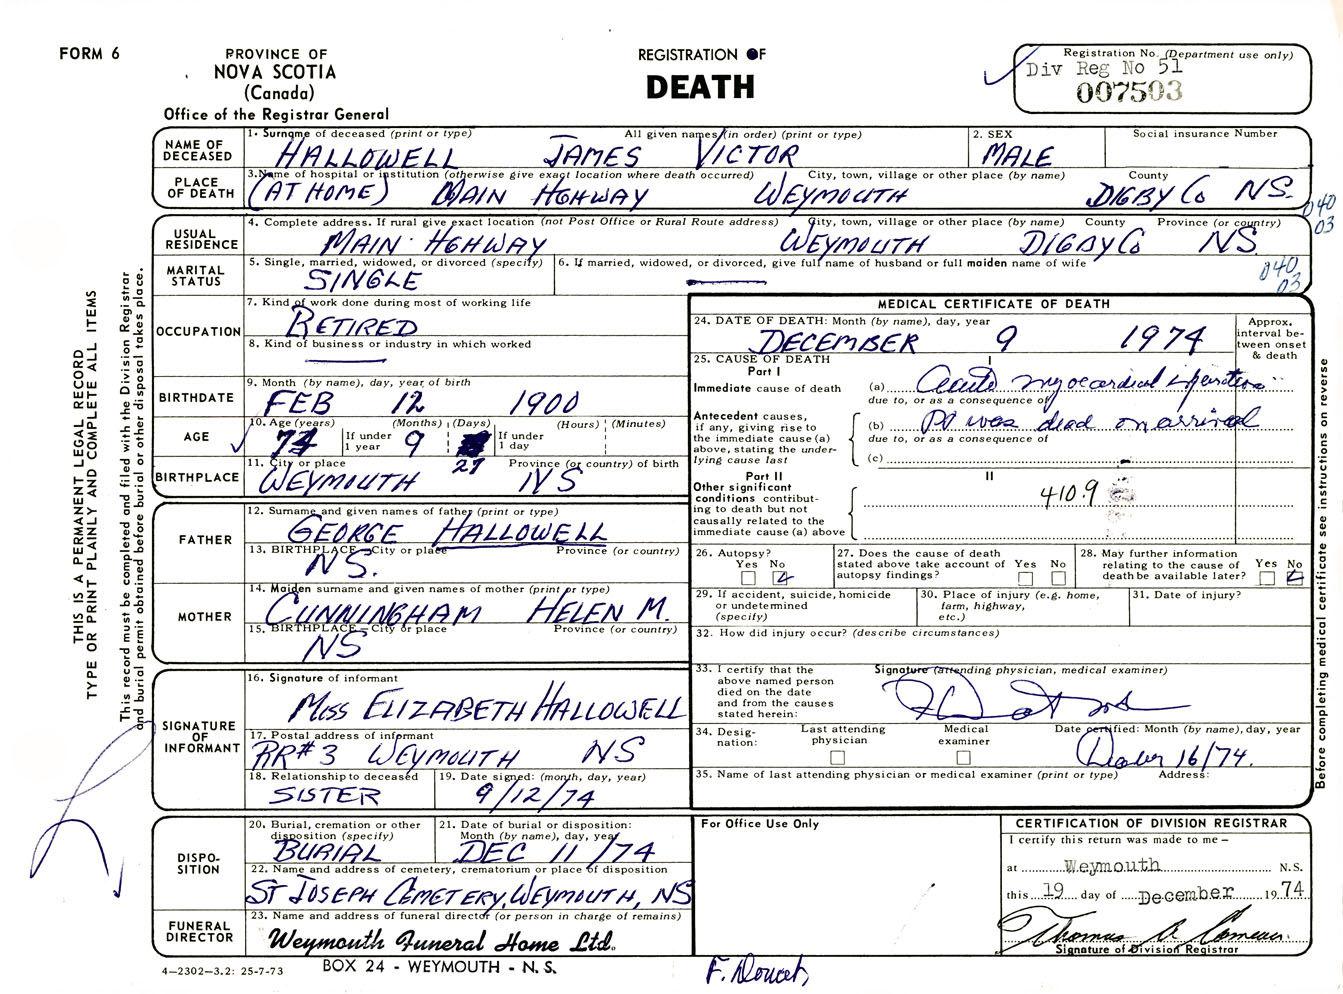 FORM 6
PROVINCE OF
NOVA SCOTIA
(Canada)
Office of the Registrar General
REGISTRATION OF
DEATH
Registration No. (Department use only)
Div Reg No 51
007503
NAME OF DECEASED
1. Surname of deceased (print or type) All given names (in order) (print or type) 2. SEX Social insurance Number
HALLOWELL JAMES VICTOR MALE
PLACE OF DEATH
3. Name of hospital or institution (otherwise give exact location where death occurred) City, town, village or other place (by name) County
(AT HOME) MAIN HGHWAY WEYMOUTH DIGBY Co NS.
040
03
USUAL RESIDENCE
4. Complete address. If rural give exact location (not Post Office or Rural Route address) City, town, village or other place (by name) County Province (or country)
MAIN HGHWAY WEYMOUTH DIGBY Co NS.
MARITAL STATUS
5. Single, married, widowed, or divorced (specify) 6. If married, widowed, or divorced, give full name of husband or full maiden name of wife
SINGLE
040
03
OCCUPATION
7. Kind of work done during most of working life
RETIRED
8. Kind of business or industry in which worked
BIRTHDATE
9. Month (by name), day, year of birth
FEB 12 1900
AGE
10. Age (years) (Months) (Days) (Hours) (Minutes)
74 If under 1 year 9 If under 1 day
27
BIRTHPLACE
11. City or place Province (or country) of birth
WEYMOUTH NS
FATHER
12. Surname and given names of father (print or type)
GEORGE HALLOWELL
13. BIRTHPLACE—City or place Province (or country)
NS.
MOTHER
14. Maiden surname and given names of mother (print or type)
CUNNINGHAM HELEN M.
15. BIRTHPLACE—City or place Province (or country)
NS
SIGNATURE OF INFORMANT
16. Signature of informant
MISS ELIZABETH HALLOWELL
17. Postal address of informant
RR#3 WEYMOUTH NS
18. Relationship to deceased 19. Date signed: (month, day, year)
SISTER 9/12/74
DISPO-
SITION
20. Burial, cremation or other disposition (specify) 21. Date of burial or disposition: Month (by name), day, year
BURIAL DEC 11/74
22. Name and address of cemetery, crematorium or place of disposition
ST JOSEPH CEMETERY, WEYMOUTH, NS
FUNERAL DIRECTOR
23. Name and address of funeral director (or person in charge of remains)
Weymouth Funeral Home Ltd.
BOX 24 - WEYMOUTH - N. S.
4—2302—3.2: 25-7-73
MEDICAL CERTIFICATE OF DEATH
24. DATE OF DEATH: Month (by name), day, year
DECEMBER 9 1974
Approx. interval be-
tween onset & death
25. CAUSE OF DEATH
Part I
I
Immediate cause of death (a) Acute myocardial
due to, or as a consequence of
Antecedent causes, if any, giving rise to the immediate cause (a) above, stating the under-
lying cause last
(b) Pt was dead on arrival
due to, or as a consequence of
(c)
Part II
II
Other significant conditions contribut-
ing to death but not causally related to the immediate cause (a) above
410.9
26. Autopsy? Yes No
27. Does the cause of death stated above take account of autopsy findings? Yes No
28. May further information relating to the cause of death be available later? Yes No
29. If accident, suicide, homicide or undetermined (specify)
30. Place of injury (e.g. home, farm, highway, etc.)
31. Date of injury?
32. How did injury occur? (describe circumstances)
33. I certify that the above named person died on the date and from the causes stated herein:
Signature (attending physician, medical examiner)
34. Desig-
nation: Last attending physician Medical examiner Date certified: Month (by name), day, year
16/74.
35. Name of last attending physician or medical examiner (print or type) Address:
For Office Use Only
CERTIFICATION OF DIVISION REGISTRAR
I certify this return was made to me—
at Weymouth N.S.
this 19 day of December 1974
Thomas A Comeau
Signature of Division Registrar
F. Doucet,
THIS IS A PERMANENT LEGAL RECORD
TYPE OR PRINT PLAINLY AND COMPLETE ALL ITEMS
This record must be completed and filed with the Division Registrar
and burial permit obtained before burial or other disposal takes place.
Before completing medical certificate see instructions on reverse